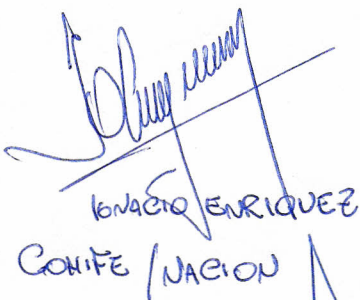 IGNACIO ENRIQUEZ
COMITE / NACION